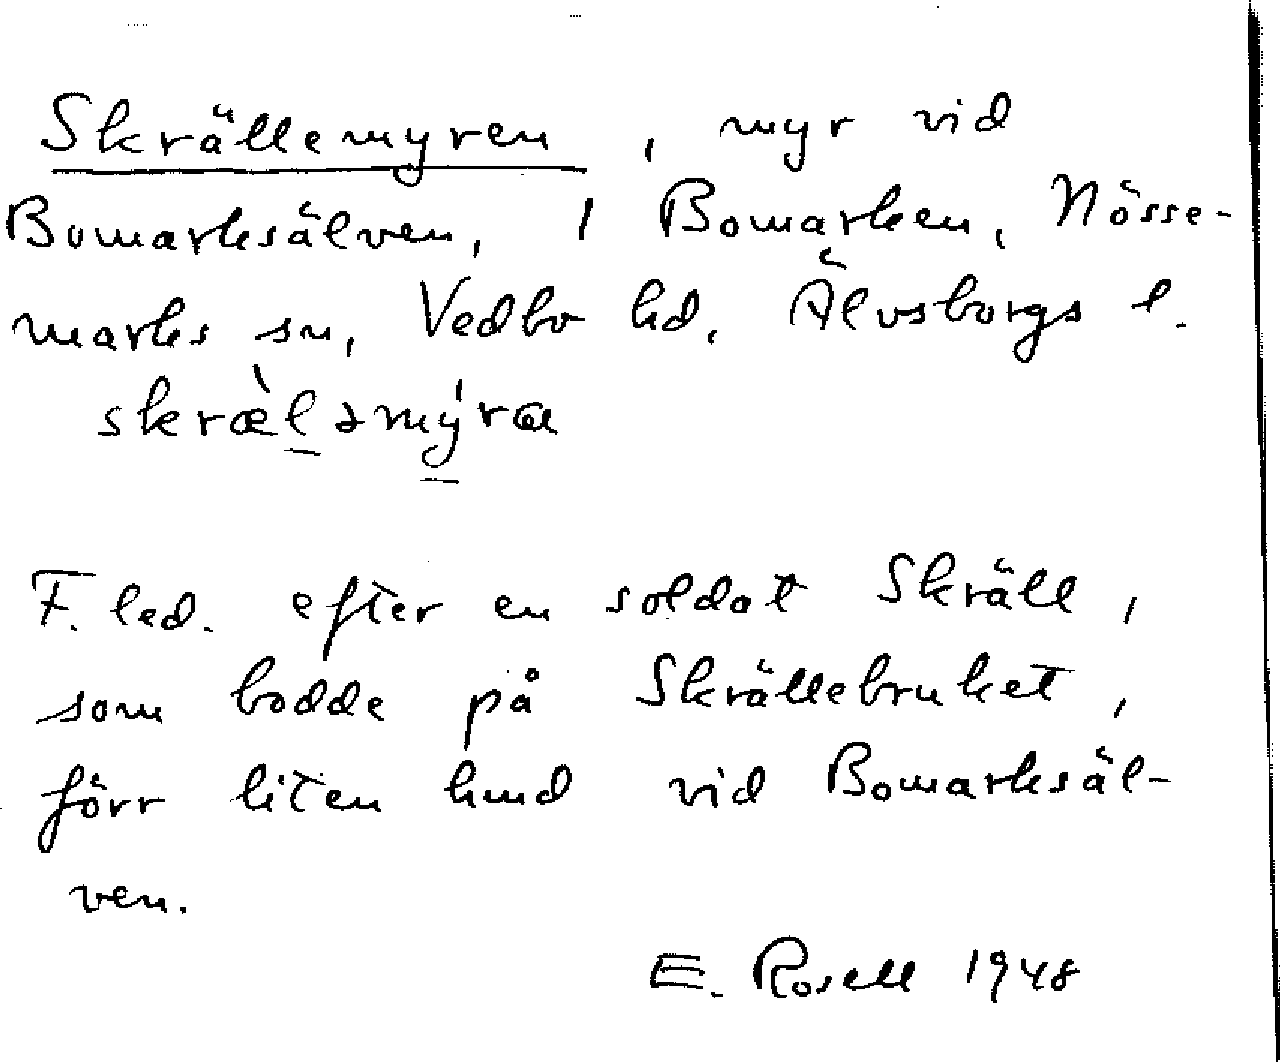 Skrällemyren, myr vid
Bomarksälven, 1 Bomarken, Nösse-
marks sn, Vedbo hd, Älvsborgs l.
skræ̀l̠əmý̠ra
F. led. efter en soldat Skräll,
som bodde på Skrällebruket,
förr liten hmd vid Bomarksäl-
ven.
E. Rosell 1948